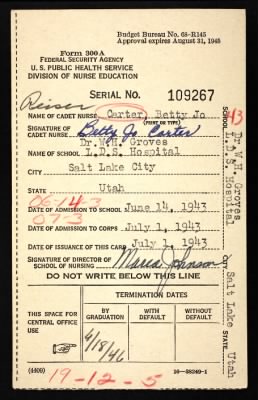 Budget Bureau No. 68-R145
Approval expires August 31, 1945
Form 300A
FEDERAL SECURITY AGENCY
U. S. PUBLIC HEALTH SERVICE
DIVISION OF NURSE EDUCATION
SERIAL No. 109267
Reiser
NAME OF CADET NURSE Carter, Betty Jo
(PRINT OR TYPE)
SIGNATURE OF CADET NURSE Betty Jo Carter
Dr. W.H. Groves
NAME OF SCHOOL L.D.S. Hospital
CITY Salt Lake City
STATE Utah
06-14-3
DATE OF ADMISSION TO SCHOOL June 14, 1943
07-3
DATE OF ADMISSION TO CORPS July 1, 1943
DATE OF ISSUANCE OF THIS CARD July 1, 1943
SIGNATURE OF DIRECTOR OF SCHOOL OF NURSING Maria Johnson
DO NOT WRITE BELOW THIS LINE
THIS SPACE FOR CENTRAL OFFICE USE
TERMINATION DATES
BY GRADUATION
WITH DEFAULT
WITHOUT DEFAULT
6/18/46
(4409)
16—38249-1
19-12-5
43
SCHOOL Dr. W.H. Groves
L. D. S. Hospital
Salt Lake
STATE Utah